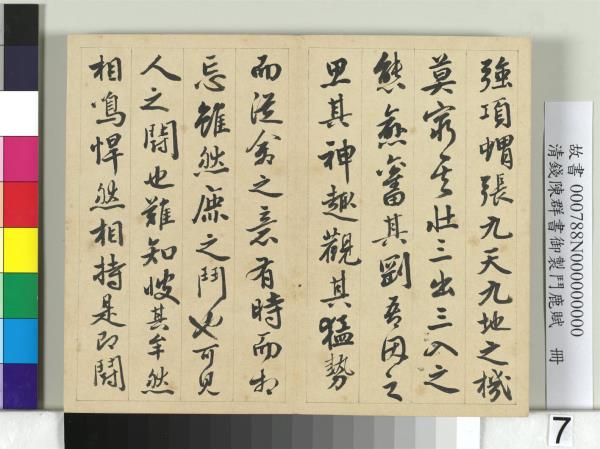 強項蝟張九天九地之機
莫窮其壯三出三入之
態無蓄其劉吾因之
思其神趣觀其猛勢
而淫矣之意有時而相
忘雖然鹿之鬥也可見
人之鬪也難知嗖其牟然
相鳴悍然相持是即鬪
故書 000788N000000000
清錢陳群書御製鬥鹿賦 冊
7